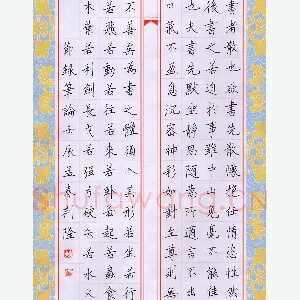 書者散也欲書先散懷抱任情恣性然
後書之若迫於事雖中山兔毫不能佳
也夫書先默坐靜思隨意所適言不出
口氣不盈息沉密神彩如對至尊則無
不善矣為書之體須入其形若坐若行
若飛若動若往若來若臥若起若蟲食
木葉若利劍長戈若強弓硬矢若水火
節錄筆論壬辰孟春利隆
Shufawang.CN